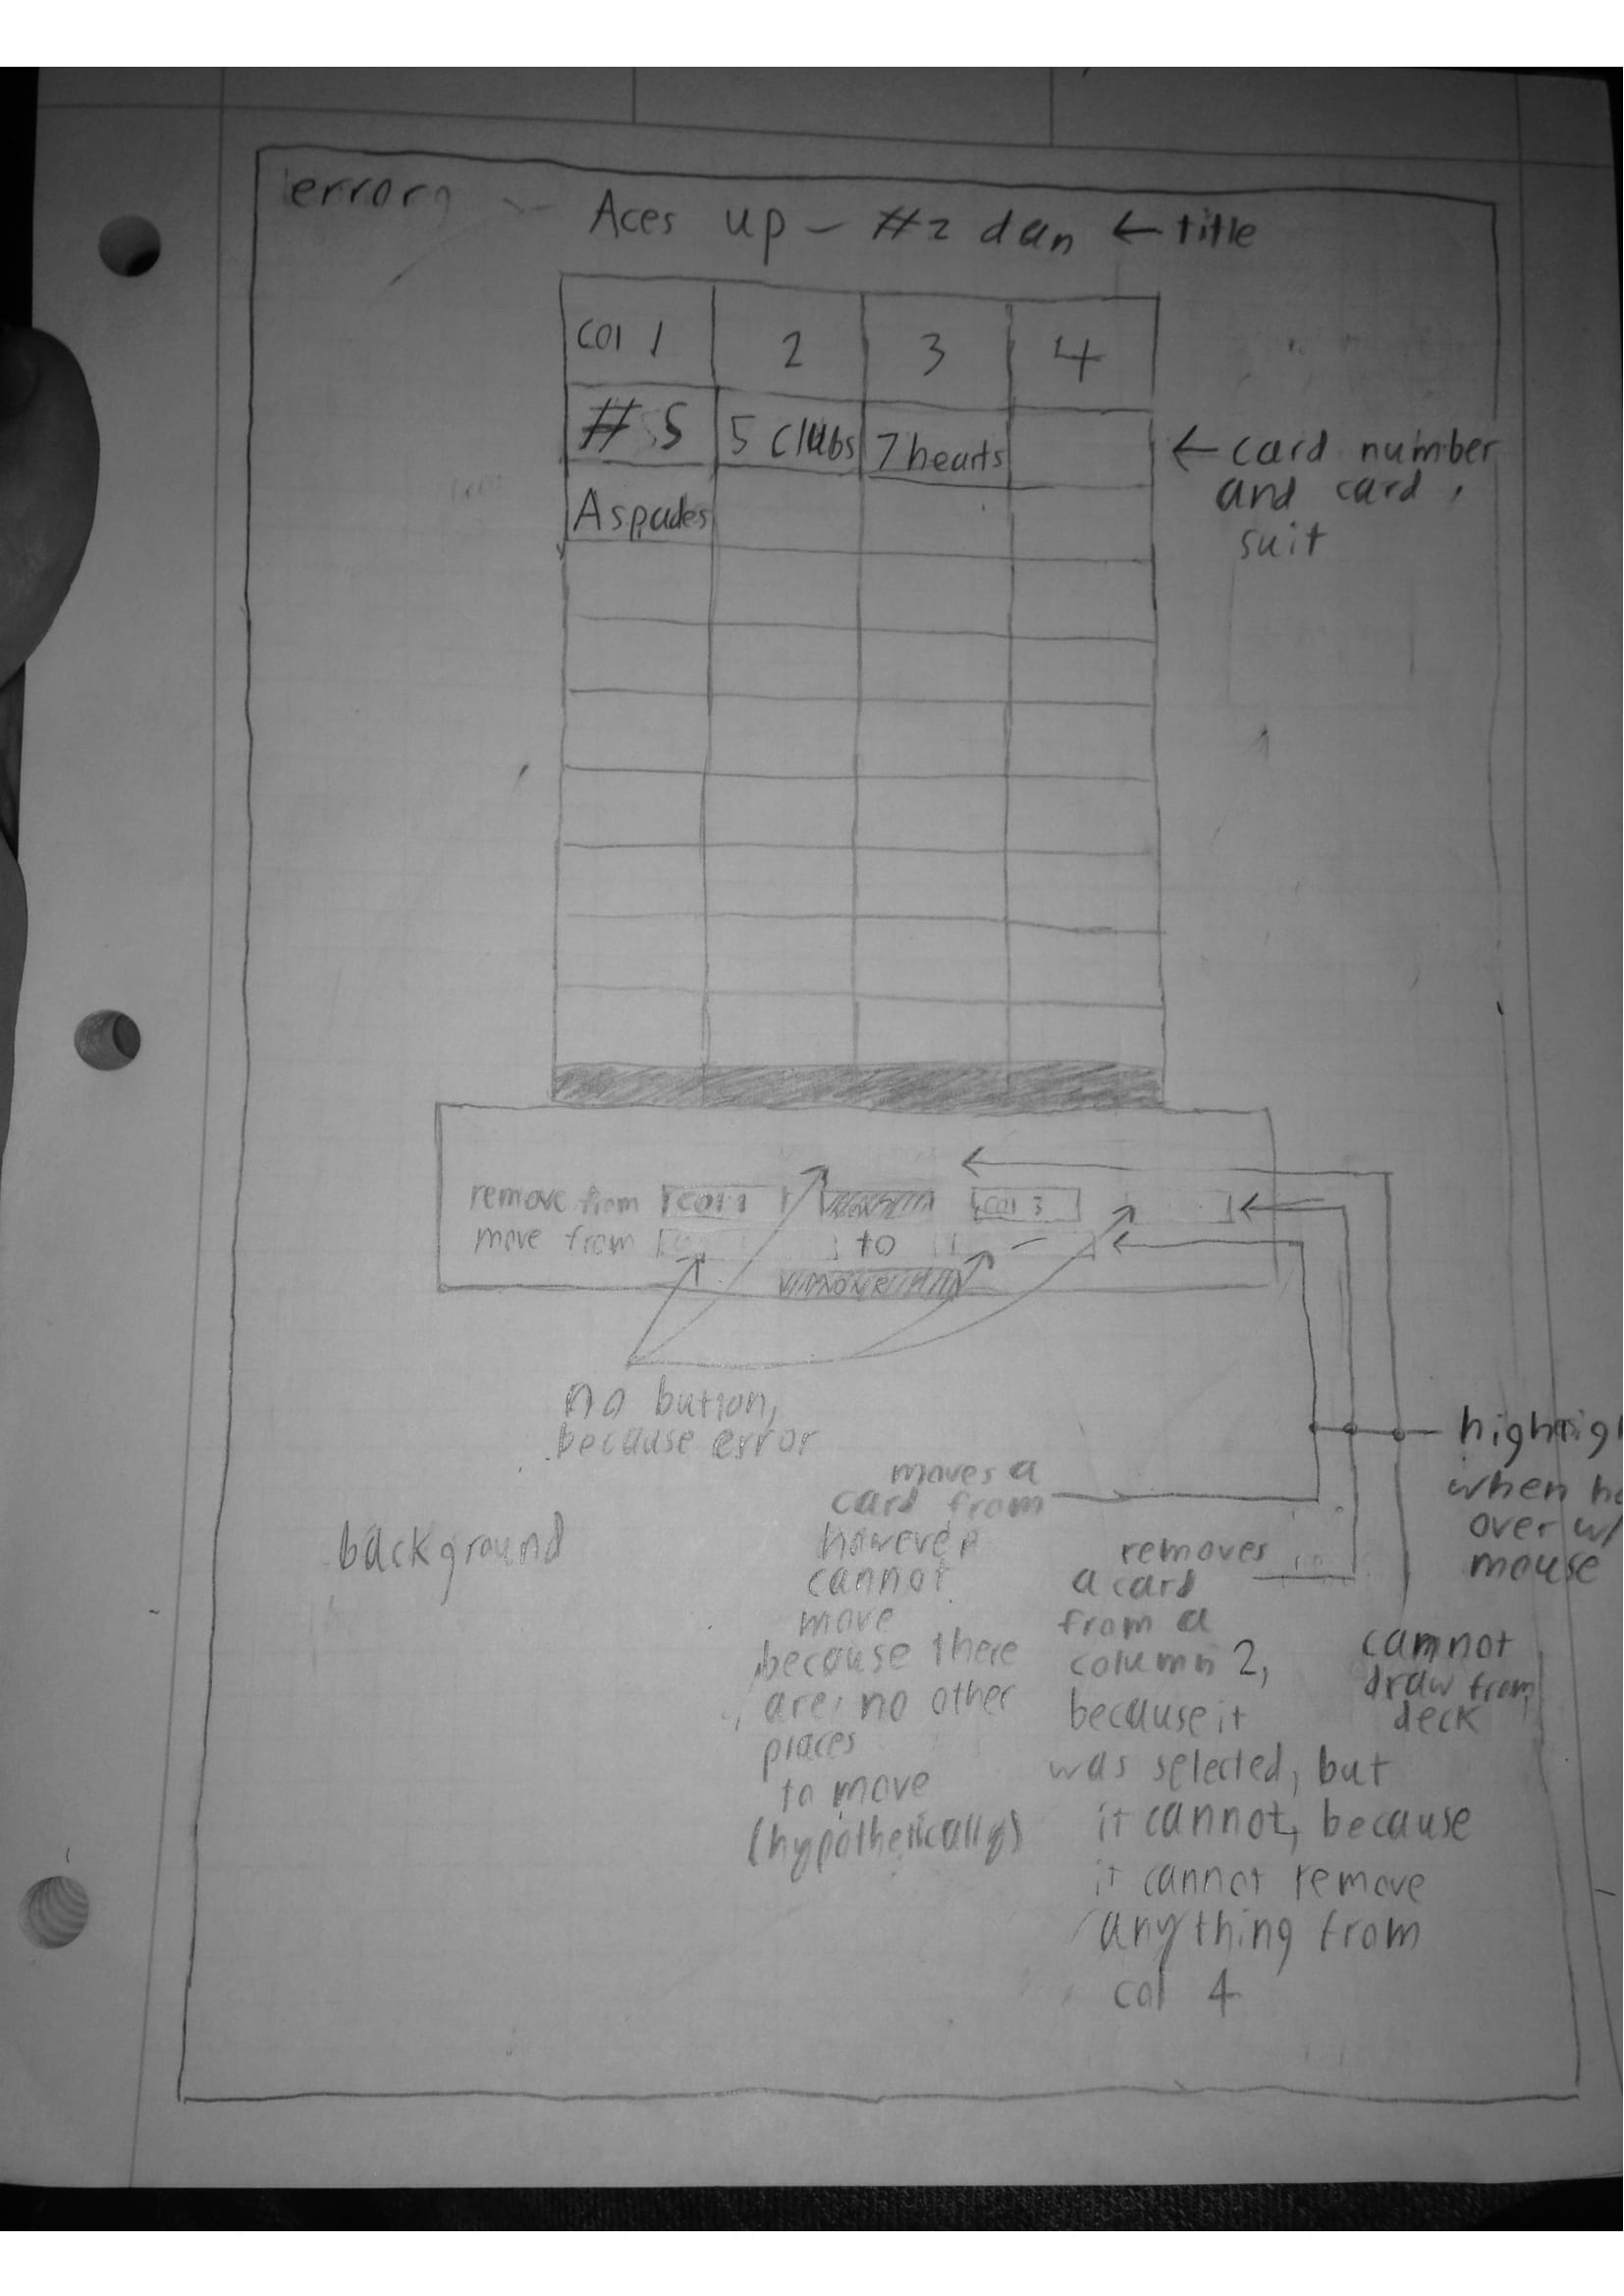 error
Aces up - #2 dan ← title
col 1 2 3 4
# S 5 clubs 7 hearts
← card number
and card
suit
A spades
remove from col 1 col 3
move from to
no button,
because error
highlig
when ho
over w/
mouse
moves a
card from
however
cannot
move
because there
are no other
places
to move
(hypothetically)
removes
a card
from a
column 2,
because it
was selected, but
it cannot, because
it cannot remove
anything from
col 4
cannot
draw from
deck
background